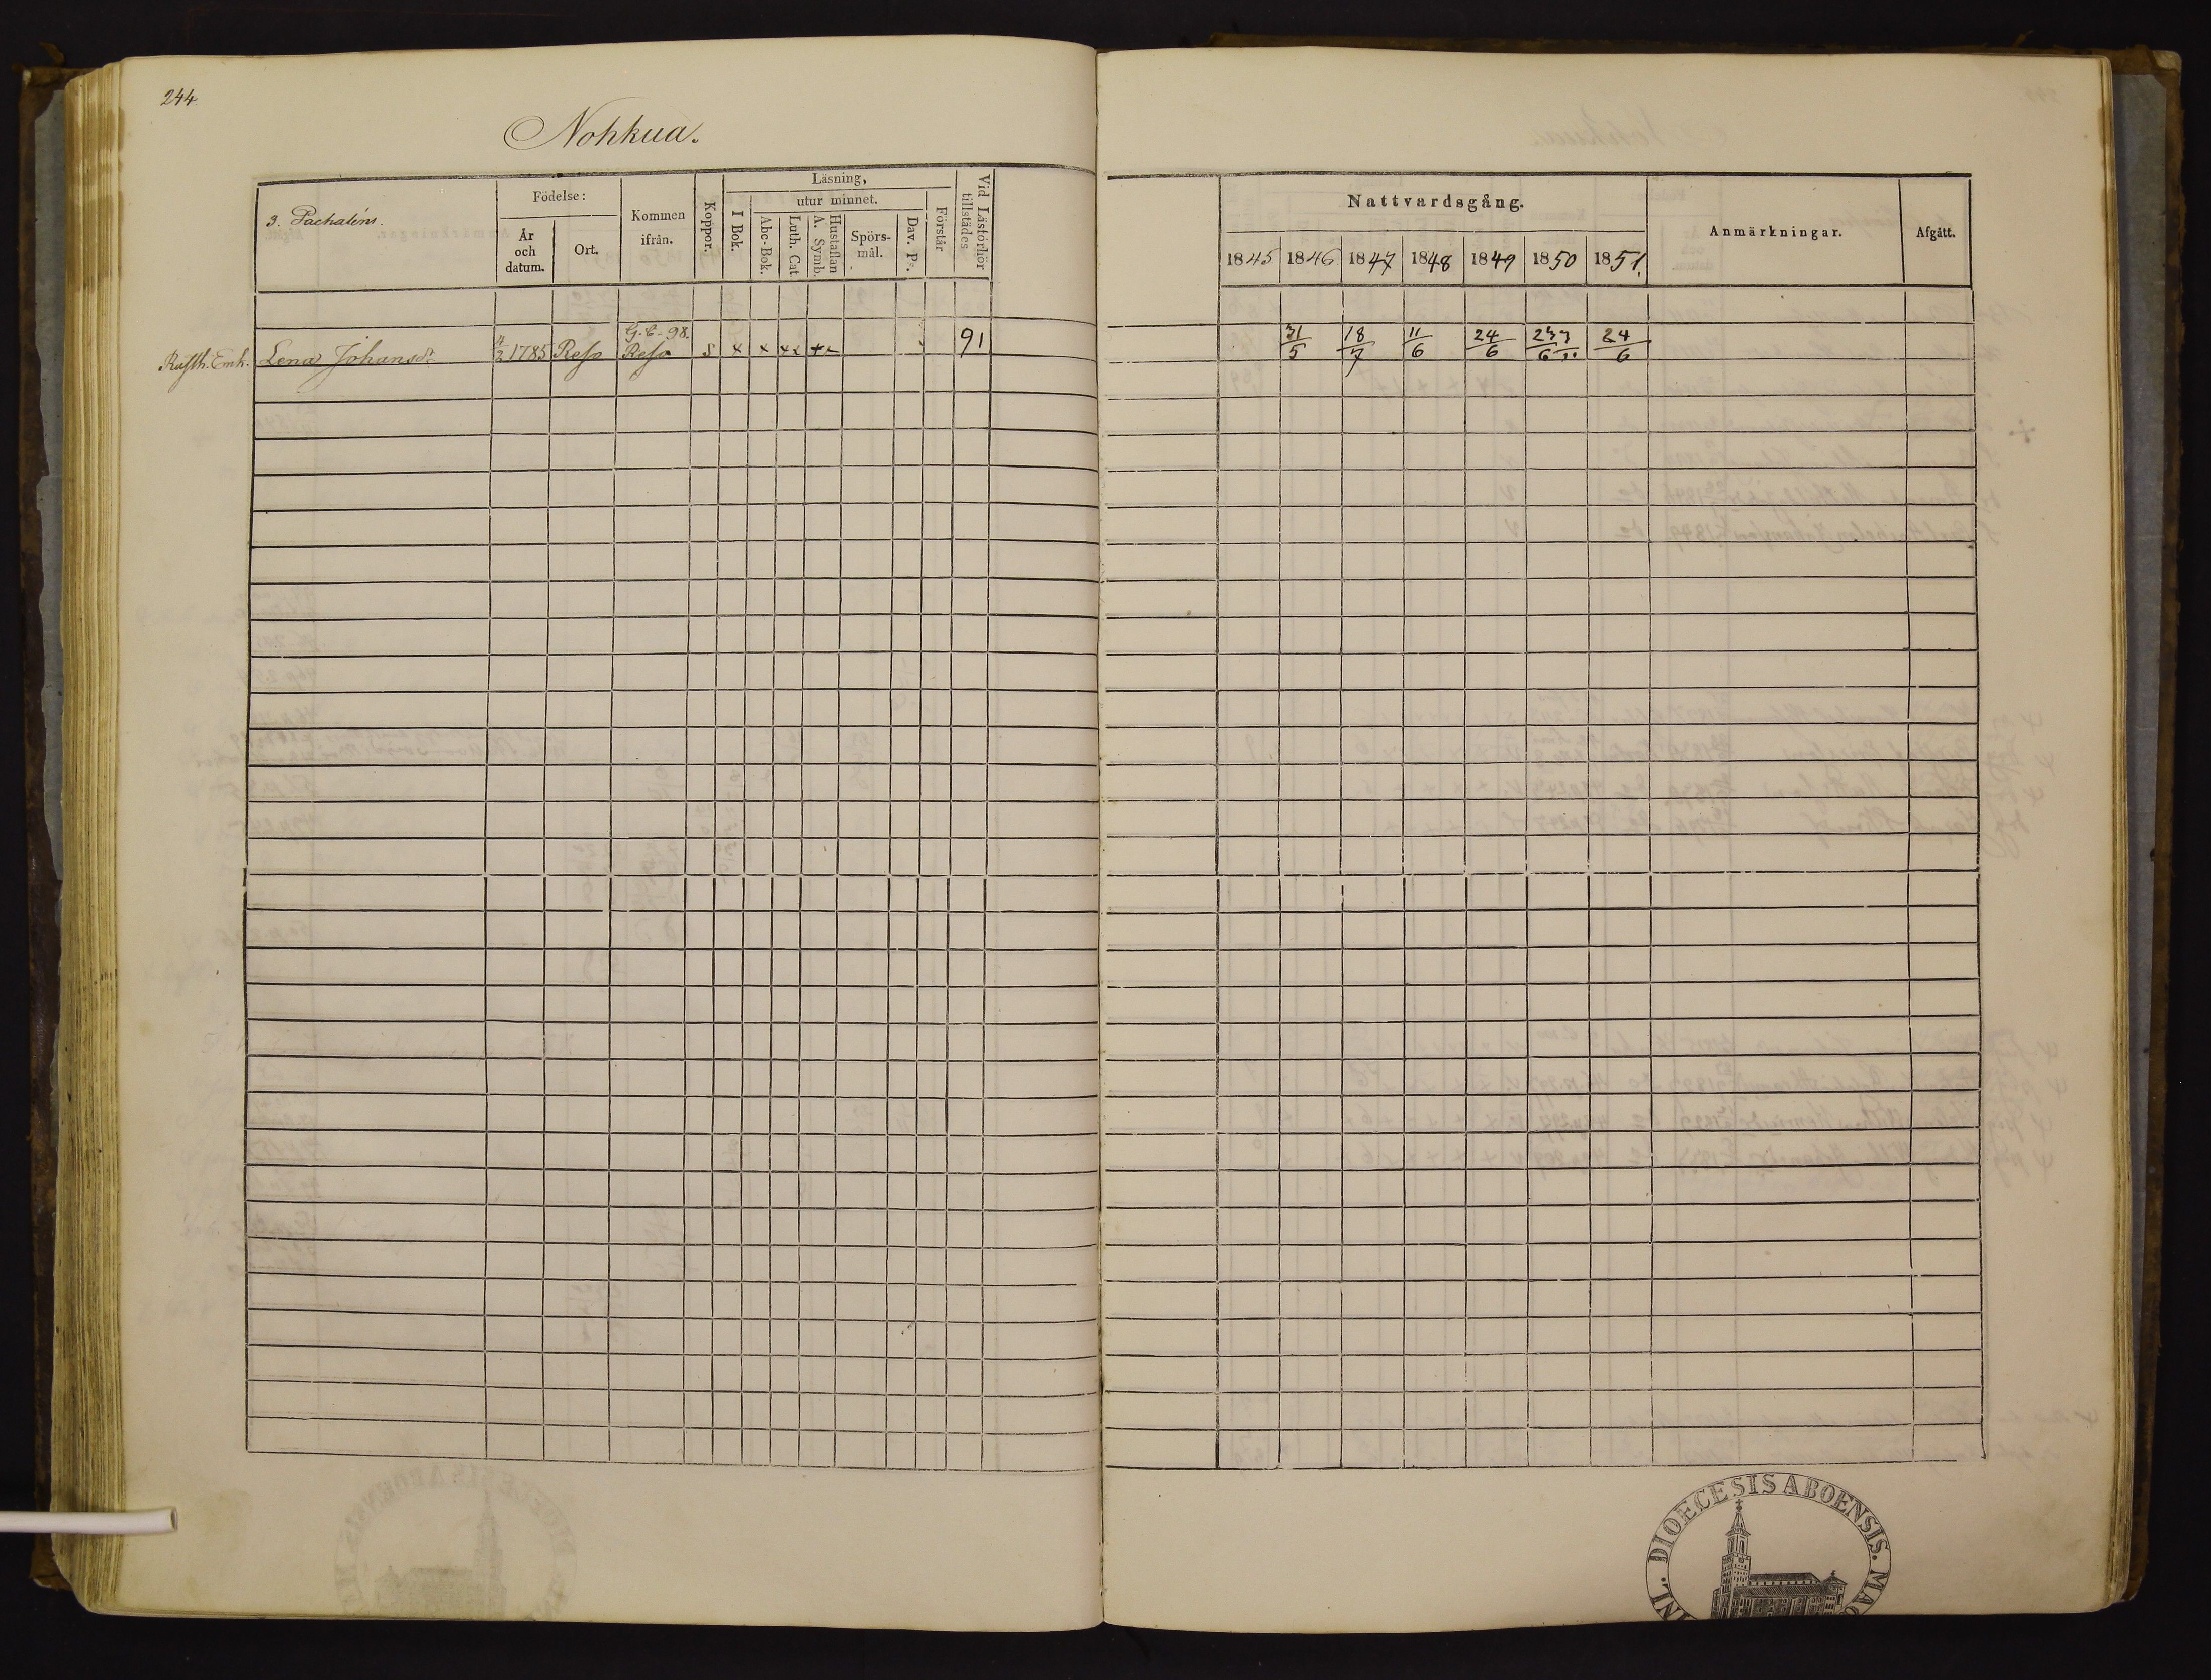 244
Nohkua.
3. Pachaléns.
Födelse:
År och datum.
Ort.
Kommen ifrån.
Koppor.
Läsning,
I Bok.
utur minnet.
Abc-Bok.
Luth. Cat
Hustaflan A. Symb.
Spörs-mål.
Dav. Ps.
Förstår
Vid Läsförhör tillstädes
Nattvardsgång.
1845 1846 1847 1848 1849 1850 1851.
Anmärkningar.
Afgått.
G. C. 98.
Rusth. Enk. Lena Johansdr 4/2 1785 Reso Reso s x x xx 91 31/5 18/7 11/6 24/6 24/6
DIOECESIS ABOENSIS. MAG